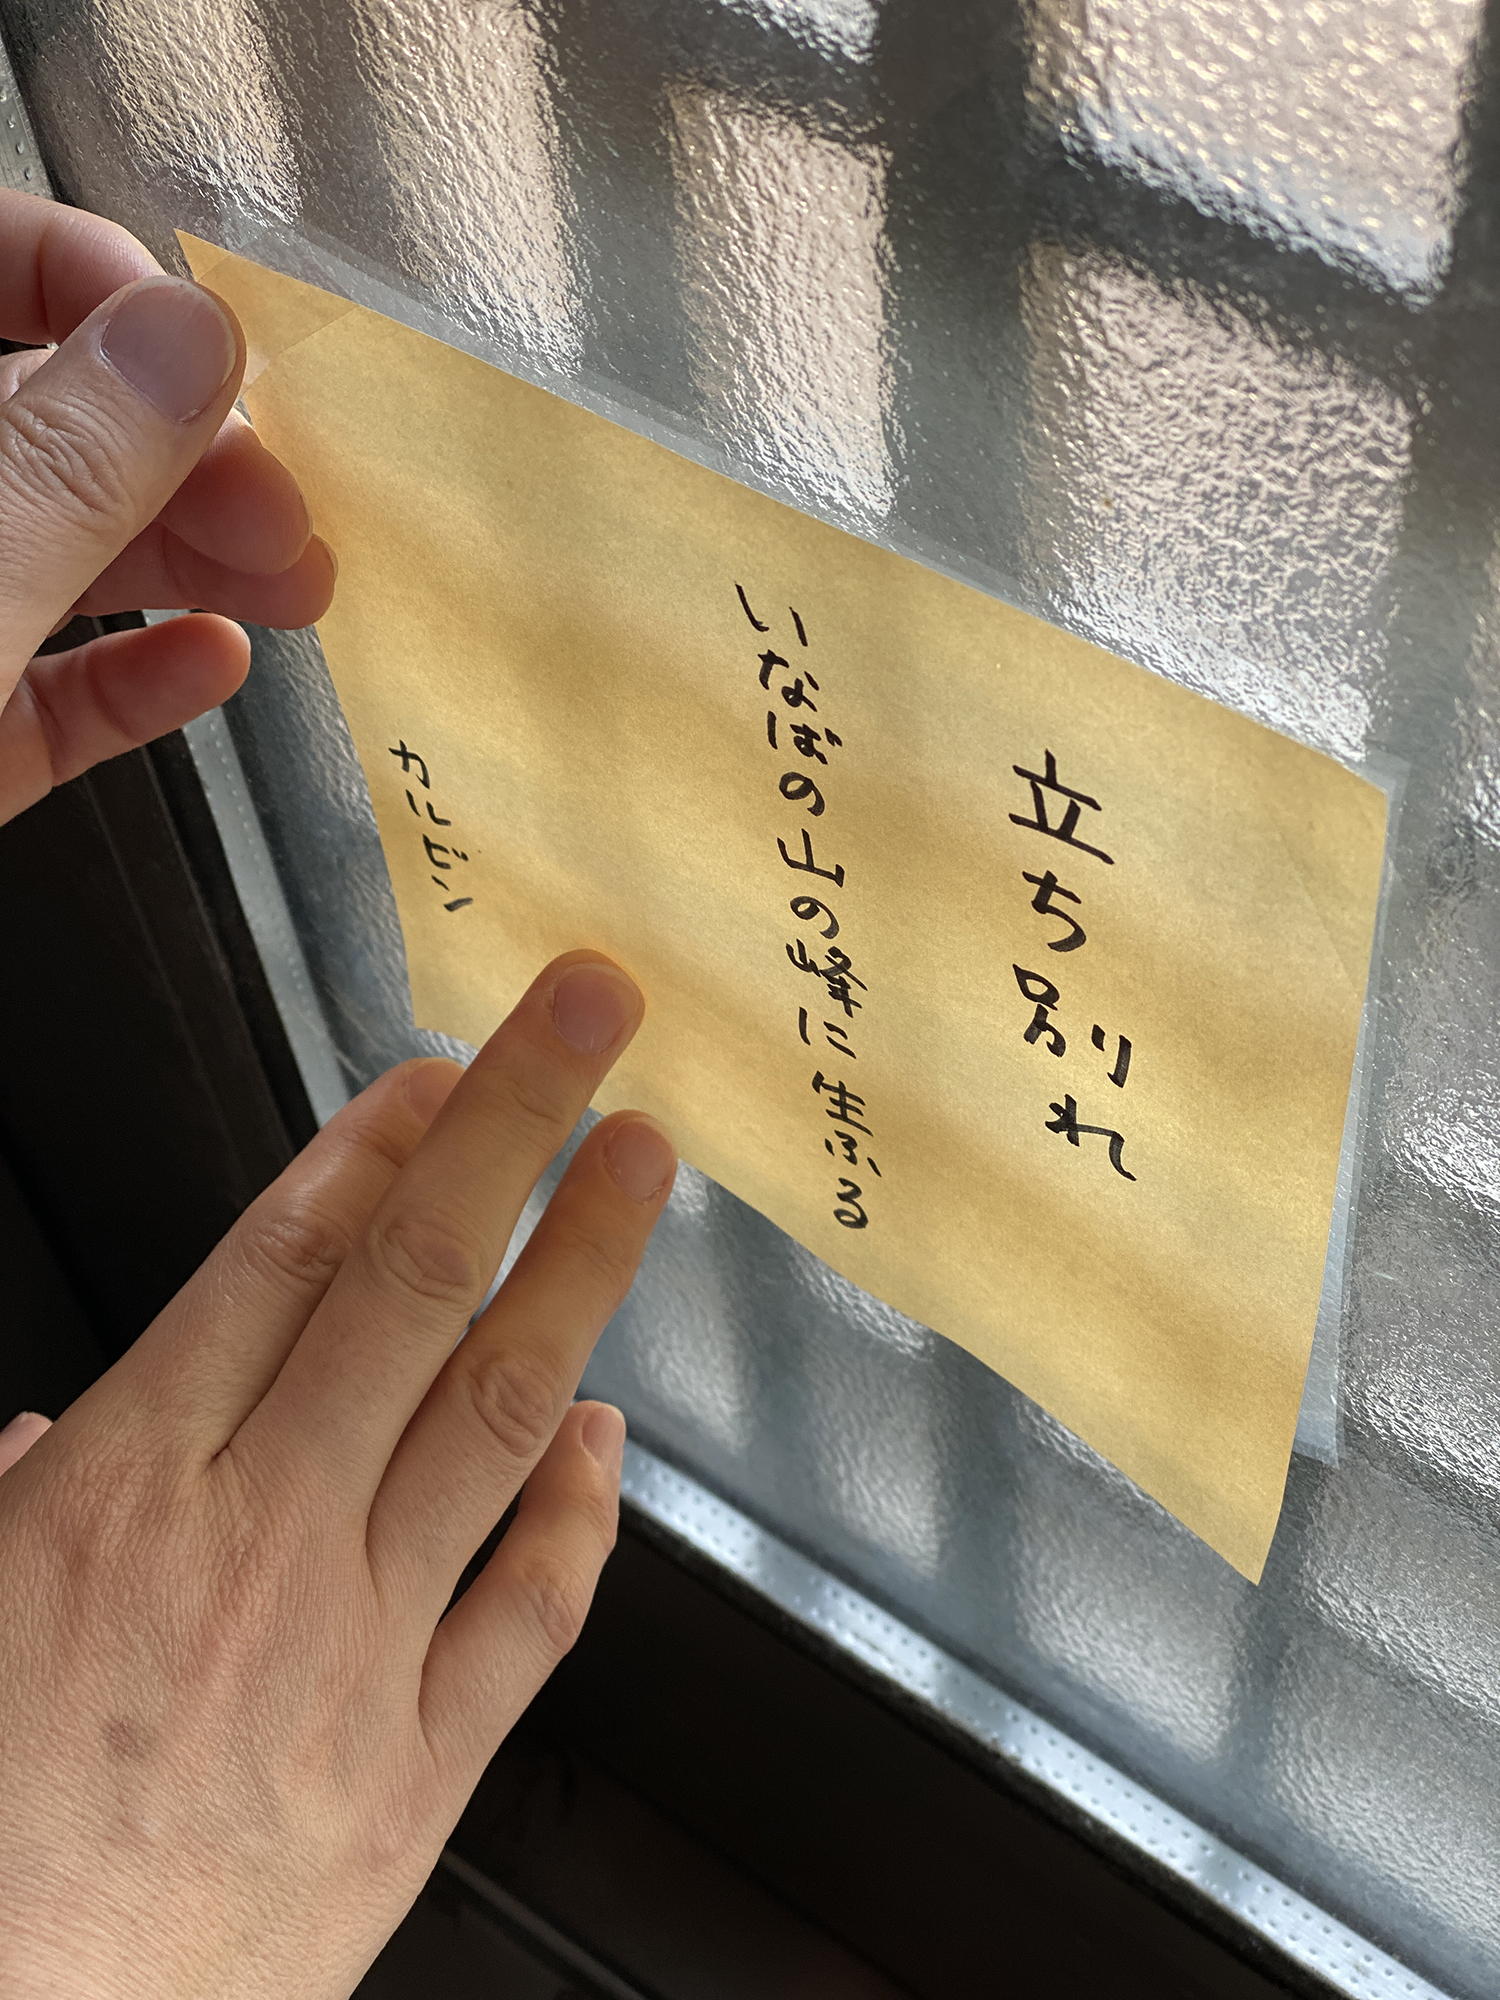 立ち別れ
いなばの山の峰に生ふる
カルビン